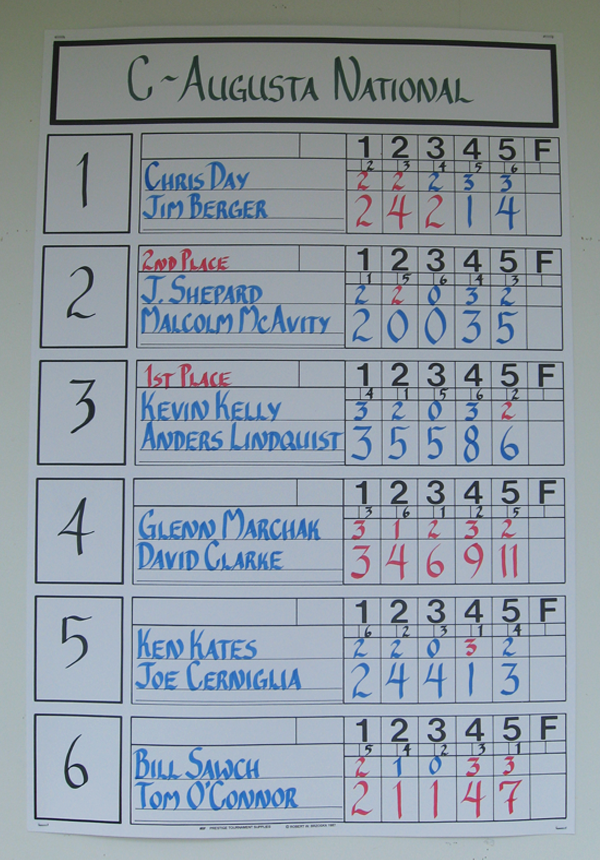 C~AUGUSTA NATIONAL
1 2 3 4 5 F
2 3 4 5 6
1
CHRIS DAY 2 2 2 3 3
JIM BERGER 2 4 2 1 4
2ND PLACE 1 2 3 4 5 F
1 5 6 4 3
2
J. SHEPARD 2 2 0 3 2
MALCOLM MCAVITY 2 0 0 3 5
1ST PLACE 1 2 3 4 5 F
4 1 5 6 2
3
KEVIN KELLY 3 2 0 3 2
ANDERS LINDQUIST 3 5 5 8 6
1 2 3 4 5 F
3 6 1 2 5
4
GLENN MARCHAK 3 1 2 3 2
DAVID CLARKE 3 4 6 9 11
1 2 3 4 5 F
6 2 3 1 4
5
KEN KATES 2 2 0 3 2
JOE CERNIGLIA 2 4 4 1 3
1 2 3 4 5 F
5 4 2 3 1
6
BILL SAWCH 2 1 0 3 3
TOM O'CONNOR 2 1 1 4 7
PRESTIGE TOURNAMENT SUPPLIES © ROBERT W.